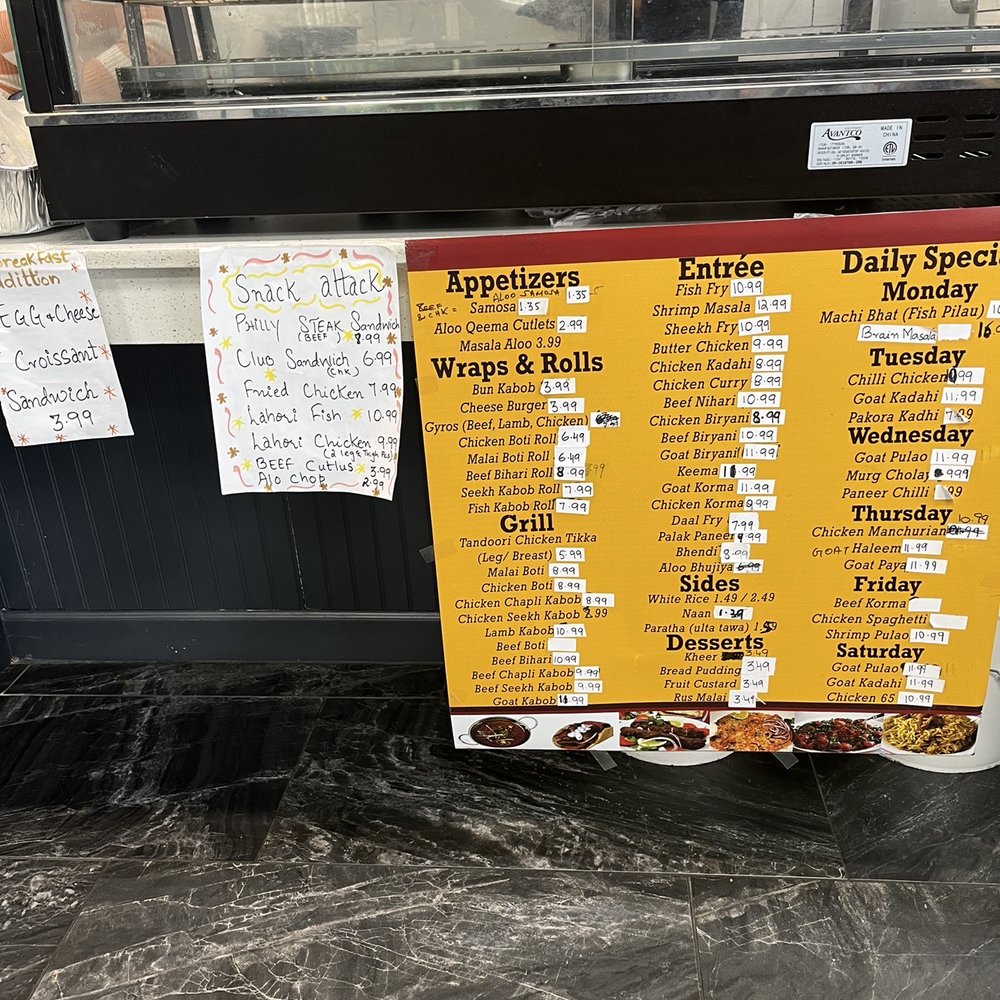 AVANTCO
MADE IN
CHINA
Breakfast
Addittion
EGG & Cheese
Croissant
Sandwich
3.99
Snack attack
PHILLY STEAK Sandwich
(BEEF) 8.99
Club Sandwich 6.99
(chk)
Fried Chicken 7.99
Lahori Fish 10.99
Lahori Chicken 9.99
(2 leg & Thigh Pcs)
BEEF Cutlus 3.99
Alo Chop 2.99
Appetizers
ALOO SAMOSA 1.35
BEEF & CHK = Samosa 1.35
Aloo Qeema Cutlets 2.99
Masala Aloo 3.99
Wraps & Rolls
Bun Kabob 3.99
Cheese Burger 3.99
Gyros (Beef, Lamb, Chicken)
Chicken Boti Roll 6.49
Malai Boti Roll 6.49
Beef Bihari Roll 8.99
Seekh Kabob Roll 7.99
Fish Kabob Roll 7.99
Grill
Tandoori Chicken Tikka
(Leg/ Breast) 5.99
Malai Boti 8.99
Chicken Boti 8.99
Chicken Chapli Kabob 8.99
Chicken Seekh Kabob 8.99
Lamb Kabob 10.99
Beef Boti
Beef Bihari 10.99
Beef Chapli Kabob 9.99
Beef Seekh Kabob 9.99
Goat Kabob 11.99
Entrée
Fish Fry 10.99
Shrimp Masala 12.99
Sheekh Fry 10.99
Butter Chicken 9.99
Chicken Kadahi 8.99
Chicken Curry 8.99
Beef Nihari 10.99
Chicken Biryani 8.99
Beef Biryani 10.99
Goat Biryani 11.99
Keema 11.99
Goat Korma 11.99
Chicken Korma 9.99
Daal Fry 7.99
Palak Paneer 9.99
Bhendi 8.99
Aloo Bhujiya 6.99
Sides
White Rice 1.49 / 2.49
Naan 1.39
Paratha (ulta tawa) 1.59
Desserts
Kheer 3.49
Bread Pudding 3.49
Fruit Custard 3.49
Rus Malai 3.49
Daily Speci
Monday
Machi Bhat (Fish Pilau)
Brain Masala 16
Tuesday
Chilli Chicken 10.99
Goat Kadahi 11.99
Pakora Kadhi 7.99
Wednesday
Goat Pulao 11.99
Murg Cholay 9.99
Paneer Chilli 99
Thursday
10.99
Chicken Manchurian
GOAT Haleem 11.99
Goat Paya 11.99
Friday
Beef Korma
Chicken Spaghetti
Shrimp Pulao 10.99
Saturday
Goat Pulao 11.99
Goat Kadahi 11.99
Chicken 65 10.99